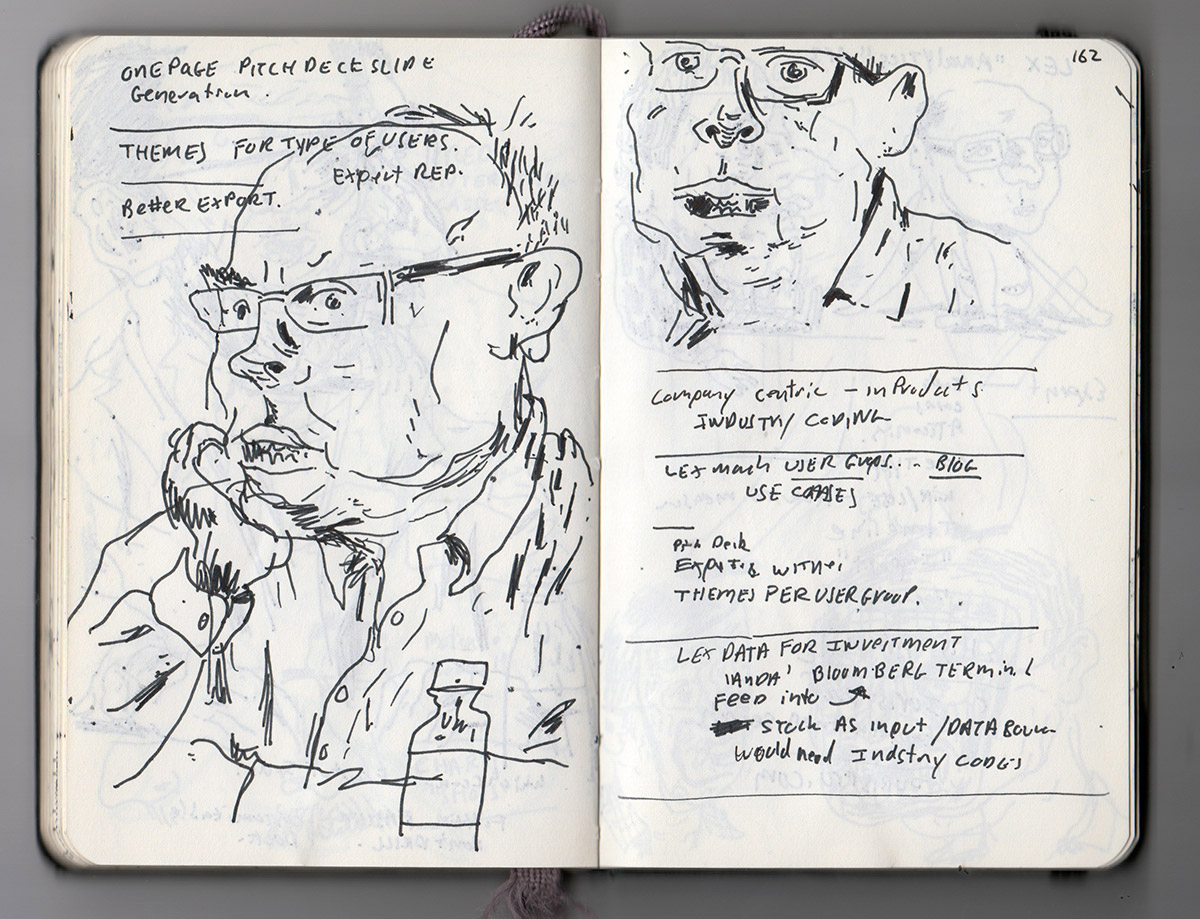 ONE PAGE PITCH DECK SLIDE
Generation.
THEMES FOR TYPE OF USERS.
Expert REP.
Better EXPORT.
162
Company centric – in Products
INDUSTRY CODING
LEX mach USER Gups.. - BLOG
USE CASES
Deck
WITHIN
THEMES PER USER GROUP.
LEX DATA FOR INVESTMENT
'ANDA' BLOOMBERG TERMINAL
FEED into
STOCK AS input / DATA
Would need Industry CODES